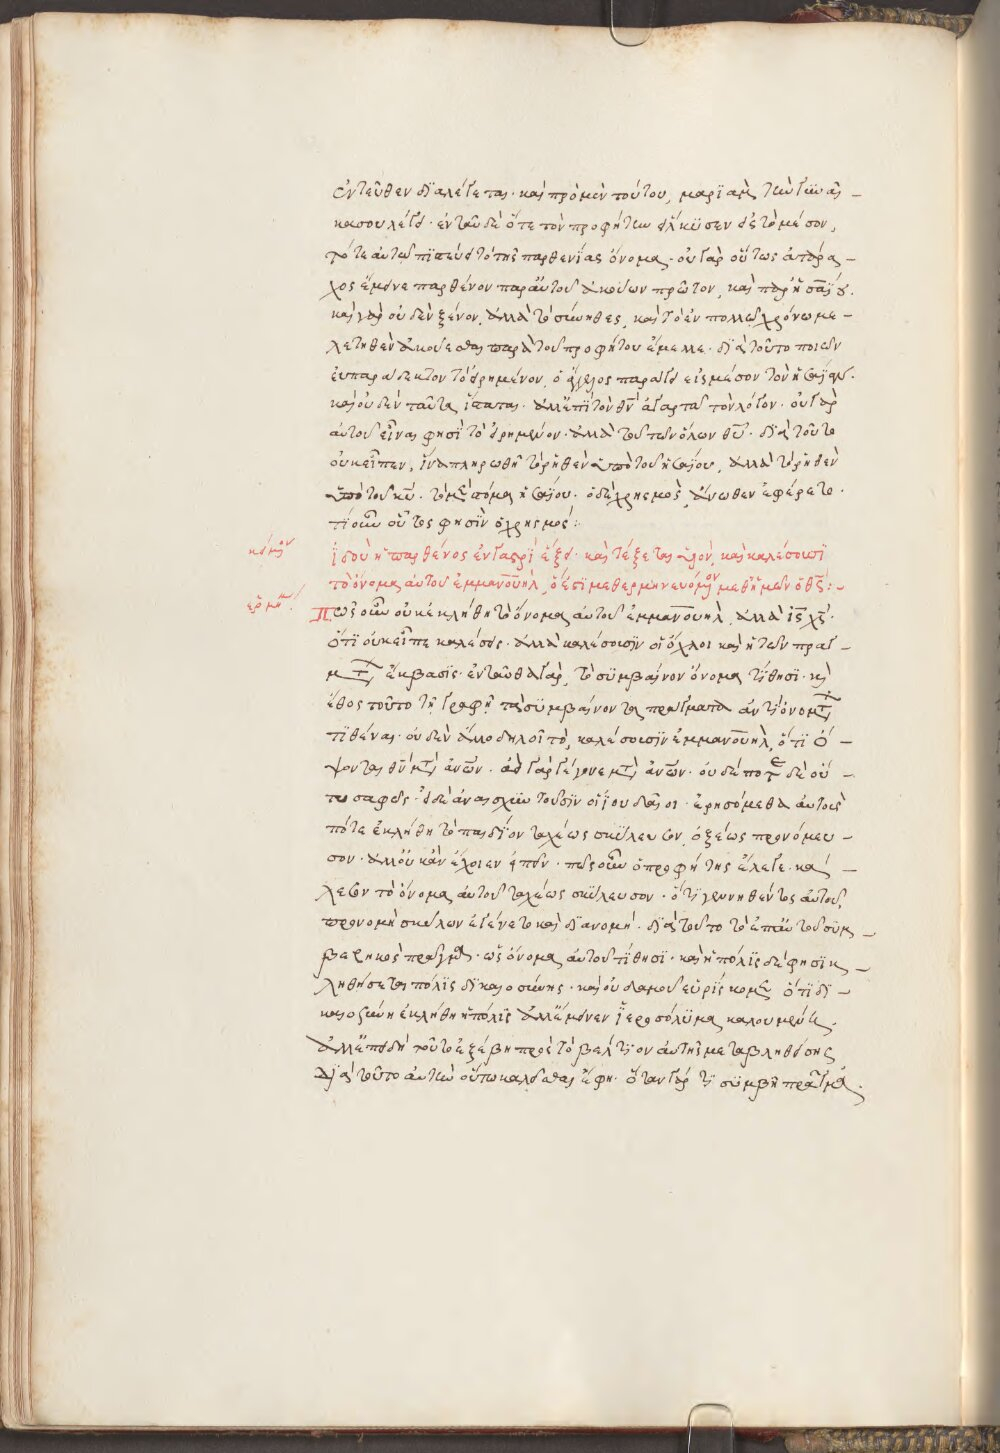 ἐντεῦθεν διαλέγεται· καὶ πρὸ μὲν τούτου, μαριὰμ τὴν γυναῖ–
κα σου λέγει· ἐνταῦθα δὲ ὅτε τὸν προφήτην εἵλκυσεν εἰς τὸ μέσον,
τότε αὐτῶ πιστεύει τὸ τῆς παρθενίας ὄνομα· οὐ γὰρ οὕτως ἀτάρα–
χος ἔμενε παρθένον παρ' αὐτοῦ ἀκούων πρῶτον, καὶ παρὰ ἡσαΐου.
καὶ γὰρ οὐδὲν ξένον, ἀλλὰ τὸ σύνηθες, καὶ τὸ ἐν πολλῶ χρόνω με–
λετηθὲν ἀκούεσθαι παρὰ τοῦ προφήτου ἔμελλε· διὰ τοῦτο ποιῶν
εὐπαράδεκτον τὸ εἰρημένον, ὁ ἄγγελος παράγει εἰς μέσον τὸν ἡσαΐαν·
καὶ οὐδὲν ταῦτα ἵσταται· ἀλλ' ἐπὶ τὸν θν ἀναρτᾶ τὸν λόγον· οὐ γὰρ
αὐτοῦ εἶναι φησὶ τὸ εἰρημένον· ἀλλὰ τοῦ τῶν ὅλων θυ· διὰ τοῦτο
οὐκ εἶπεν, ἵνα πληρωθῆ τὸ ῥηθὲν ὑπὸ τοῦ ἡσαΐου, ἀλλὰ τὸ ῥηθὲν
ὑπὸ τοῦ κυ· τὸ μὲν στόμα ἡσαΐου· ὁ δὲ χρησμὸς, ἄνωθεν ἐφέρετο·
τί οὖν οὗτος φησὶν ὁ χρησμός:
κείμενον ἰδοὺ ἡ παρθένος ἐν γαστρὶ ἕξει· καὶ τέξεται υἱὸν, καὶ καλέσουσι
τὸ ὄνομα αὐτοῦ ἐμμανουηλ, ὅ ἐστι μεθερμηνευόμενον μεθ' ἡμῶν ὁ θς:–
ἑρμη. Πῶς οὖν οὐ κέκληθη τὸ ὄνομα αὐτοῦ ἐμμανουηλ, ἀλλὰ ις χς·
ὅτι οὐκ εἶπε καλέσεις· ἀλλὰ καλέσουσιν οἱ ὄχλοι καὶ ἡ τῶν πραγ–
μάτων ἔκβασις· ἐνταῦθα γὰρ, τὸ συμβαῖνον ὄνομα τίθησι· καὶ
ἔθος τοῦτο τῆ γραφῆ τὰ συμβαίνοντα πράγματα ἀντὶ ὀνομάτων
τιθέναι· οὐδὲν ἄλλο δηλοῖ τὸ, καλέσουσιν ἐμμανουηλ, ὅτι ὄ–
ψονται θν μετὰ ανων· ἀεὶ γὰρ γέγονε μετὰ ανων· οὐδέποτε δὲ οὕ–
τω σαφῶς· εἰ δὲ ἀναισχυντοῦσιν οἱ ἰουδαῖοι· ἐρησόμεθα αὐτοὺς
πότε ἐκλήθη τὸ παιδίον ταχέως σκύλευσον, ὀξέως προνόμευ–
σον· ἀλλ' οὐκ ἂν ἔχοιεν εἰπεῖν· πῶς οὖν ὁ προφήτης ἔλεγε· κά–
λεσον τὸ ὄνομα αὐτοῦ ταχέως σκύλευσον· ὅτι γεννηθέντος αὐτοῦ,
προνομὴ σκύλων ἐγένετο καὶ διανομή· διὰ τοῦτο τὸ ἐπ' αὐτοῦ συμ–
βεβηκὸς πρᾶγμα· ὡς ὄνομα αὐτοῦ τίθησι· καὶ ἡ πόλις δὲ φησὶ κ–
ληθήσεται πόλις δικαιοσύνης· καὶ οὐδαμοῦ εὑρίσκομεν ὅτι δι–
καιοσύνη ἐκλήθη ἡ πόλις ἀλλ' ἔμενεν ἱεροσόλυμα καλουμένη·
ἀλλ' ἐπειδὴ τοῦτο ἐξέβη πρὸς τὸ βέλτιον αὐτῆς μεταβληθείσης
διὰ τοῦτο αὐτὴν οὕτω καλεῖσθαι ἔφη· ὅταν γάρ τι συμβῆ πρᾶγμα.